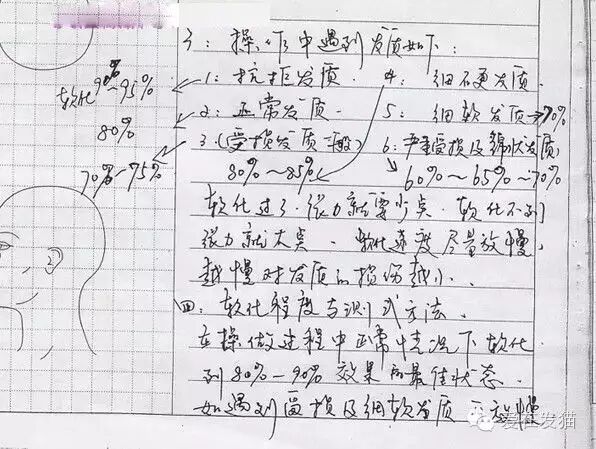 3：操作中遇到发质如下：
1：抗拒发质. 4：细不更发质.
软化90%~95%
2：正常发质. 5：细软发质→70%
80%
3.（受损发质一般） 6：严重受损及绵状发质
70%~75%
80%~85% 60%~65%~70%
软化过了.张力就要少点.软化不到
张力就大点.软化速度尽量放慢,
越慢对发质的损伤越小.
四：软化程度与测式方法.
在操做过程中正常情况下软化
到80%-90%效果的最佳状态.
如遇到受损及细软发质
爱在发猫